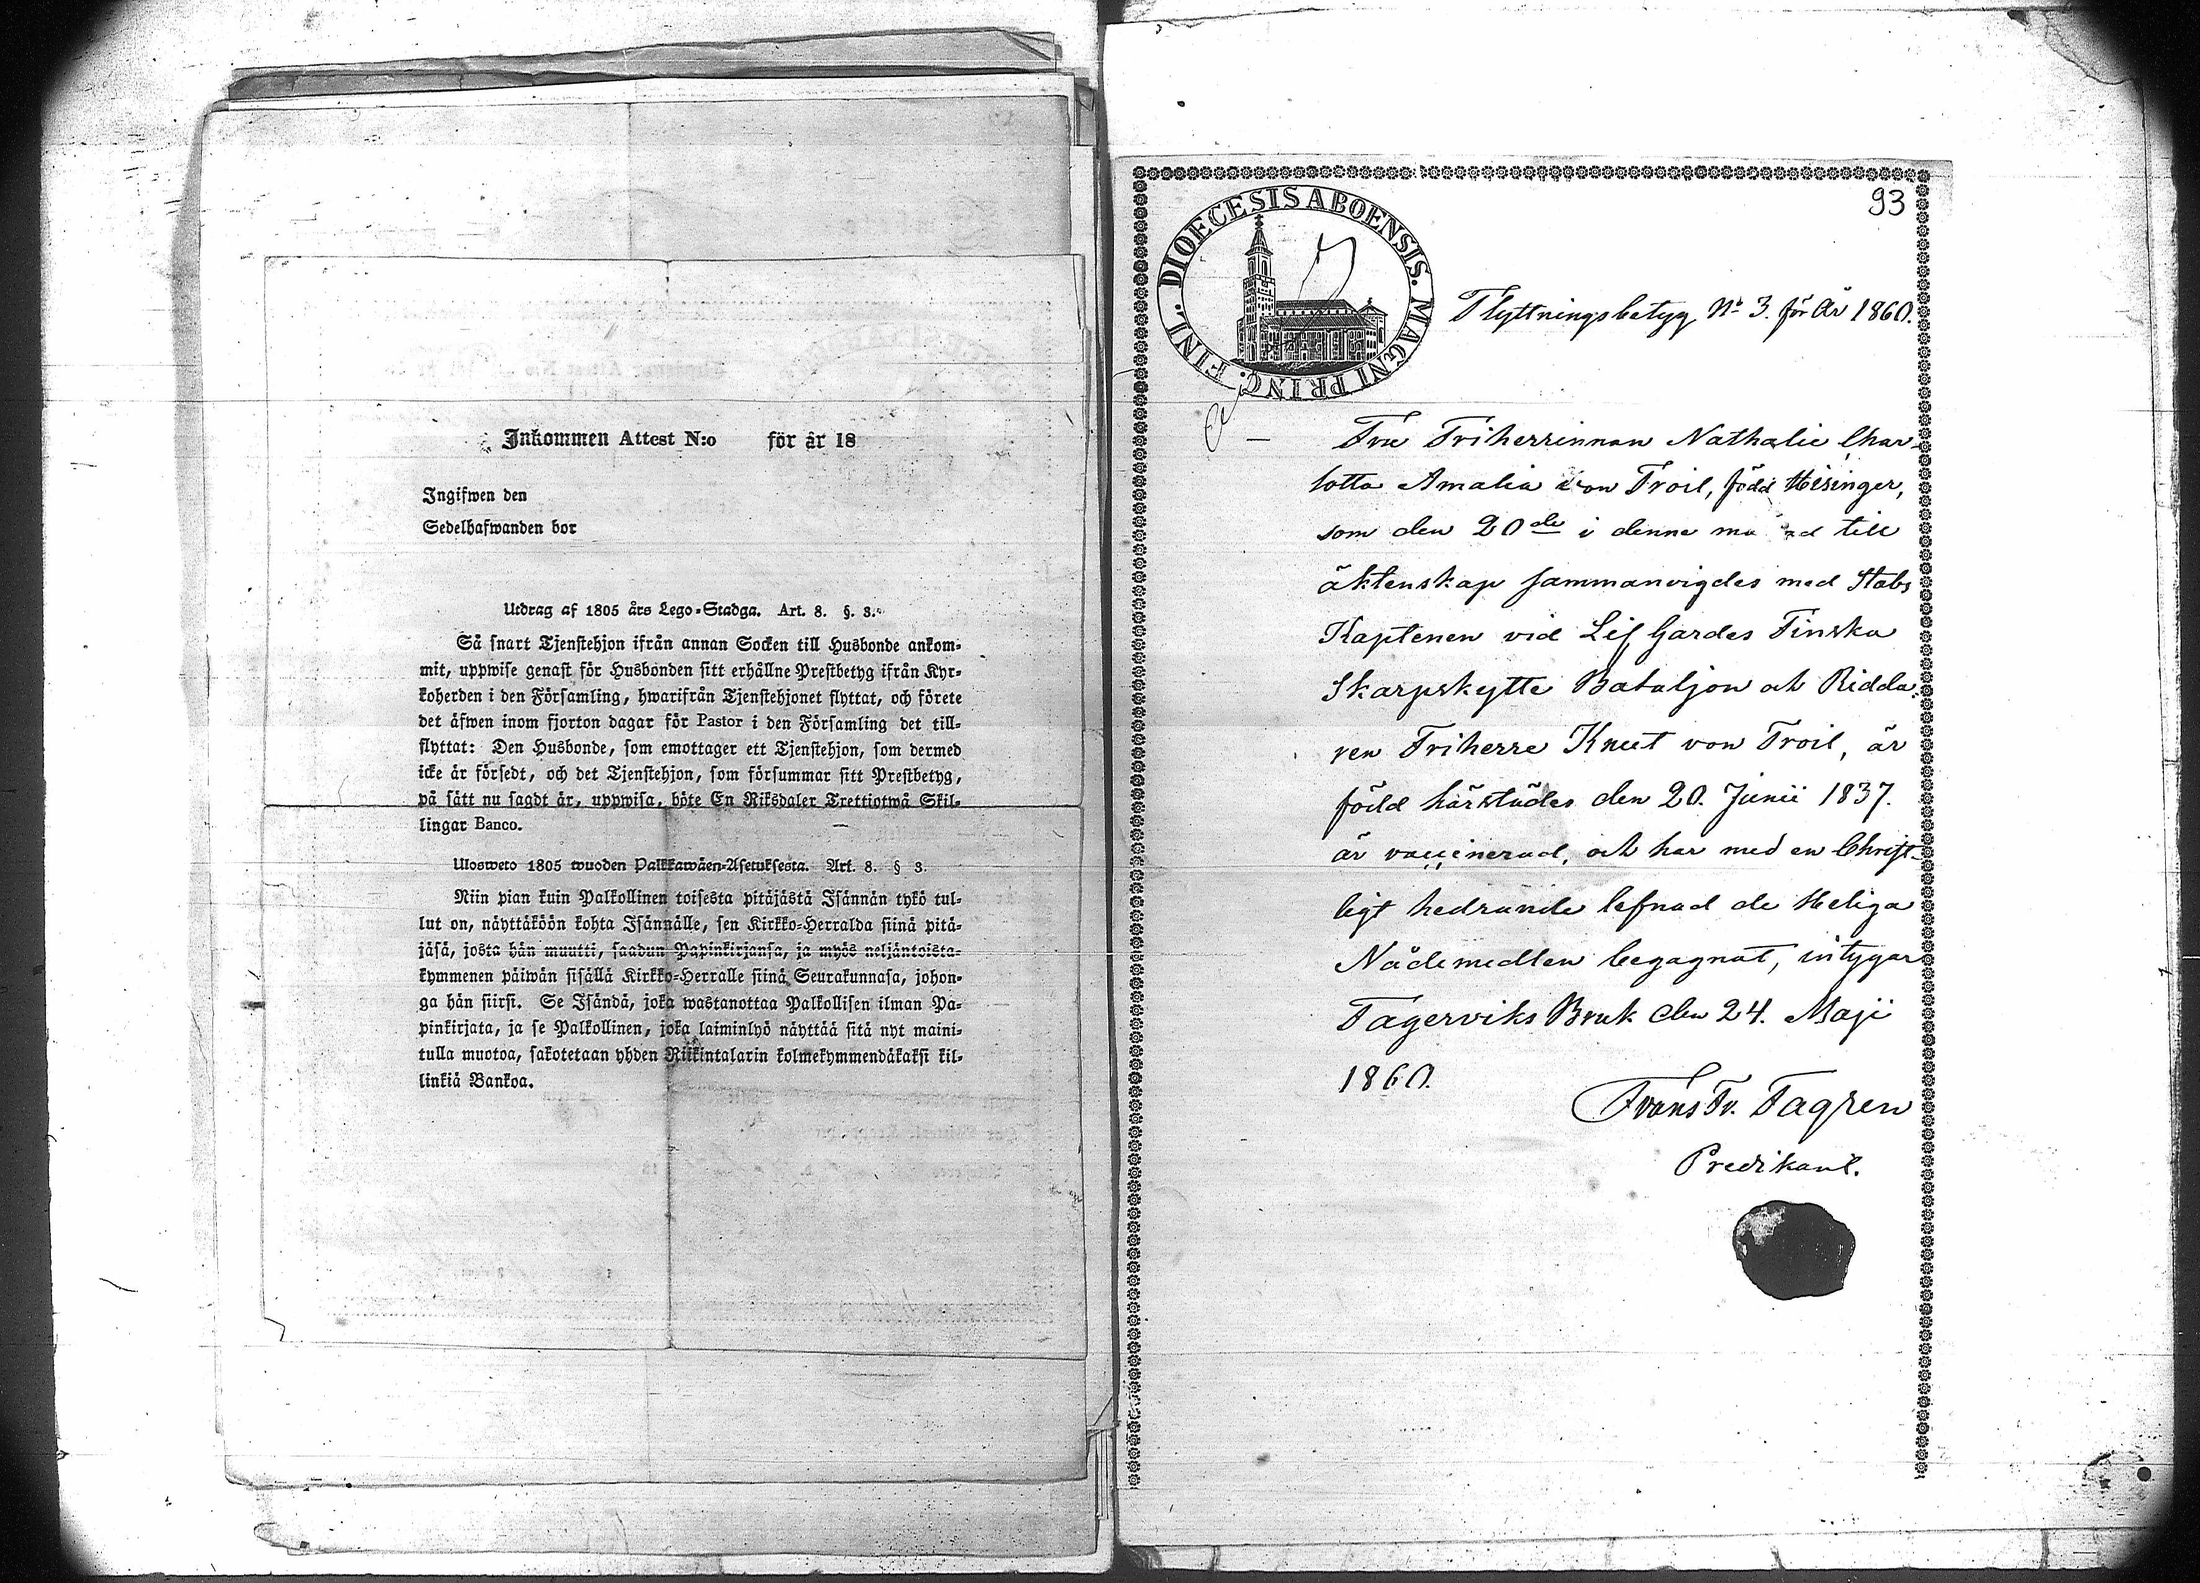 Inkommen Attest N:o för år 18
Ingifwen den
Sedelhafwanden bor
Utdrag af 1805 års Lego-Stadga. Art. 8. §. 3.
Så snart Tjenstehjon ifrån annan Socken till Husbonde ankom-
mit, uppwise genast för Husbonden sitt erhållne Prestbetyg ifrån Kyr-
koherden i den Församling, hwarifrån Tjenstehjonet flyttat, och förete
det äfwen inom fjorton dagar för Pastor i den Församling det till-
flyttat: Den Husbonde, som emottager ett Tjenstehjon, som dermed
icke är försedt, och det Tjenstehjon, som försummar sitt Prestbetyg,
på sätt nu sagdt är, uppwisa, böte En Riksdaler Trettiotwå Skil-
lingar Banco.
Ulosweto 1805 wuoden Palkkawäen-Asetuksesta. Art. 8. § 3.
Niin pian kuin Palkollinen toisesta pitäjästä Isännän tykö tul-
lut on, näyttäköön kohta Isännälle, sen Kirkko-Herralda siinä pitä-
jäsä, josta hän muutti, saadun Papinkirjansa, ja myös neljäntoista-
kymmenen päiwän sisällä Kirkko-Herralle siinä Seurakunnasa, johon-
ga hän siirsi. Se Isändä, joka wastanottaa Palkollisen ilman Pa-
pinkirjata, ja se Palkollinen, joka laiminlyö näyttää sitä nyt maini-
tulla muotoa, sakotetaan yhden Riikintalarin kolmekymmendäkaksi kil-
linkiä Bankoa.
93
DIOECESIS ABOENSIS. MAGNI PRINC. FINL.
Flyttningsbetyg No 3. för År 1860.
Fru Friherrinnan Nathalie Char-
lotta Amalia von Troil, född Hisinger,
som den 20de i denne månad till
äktenskap sammanvigdes med Stabs
Kaptenen vid Lif Gardes Finska
Skarpskytte Bataljon och Ridda-
ren Friherre Knut von Troil, är
född härstädes den 20. Junii 1837.
är vaccinerad, och har med en Christ-
ligt hedrande lefnad de Heliga
Nådemedlen begagnat, intygar
Fagerviks Bruk den 24. Maji
1860.
Frans Fr. Fagren
Predikant.